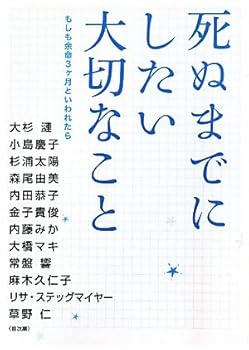 死ぬまでに
したい
大切なこと
もしも余命3ヶ月といわれたら
大杉 漣
小島慶子
杉浦太陽
森尾由美
内田恭子
金子貴俊
内藤みか
大橋マキ
常盤 響
麻木久仁子
リサ・ステッグマイヤー
草野 仁
(目次順)